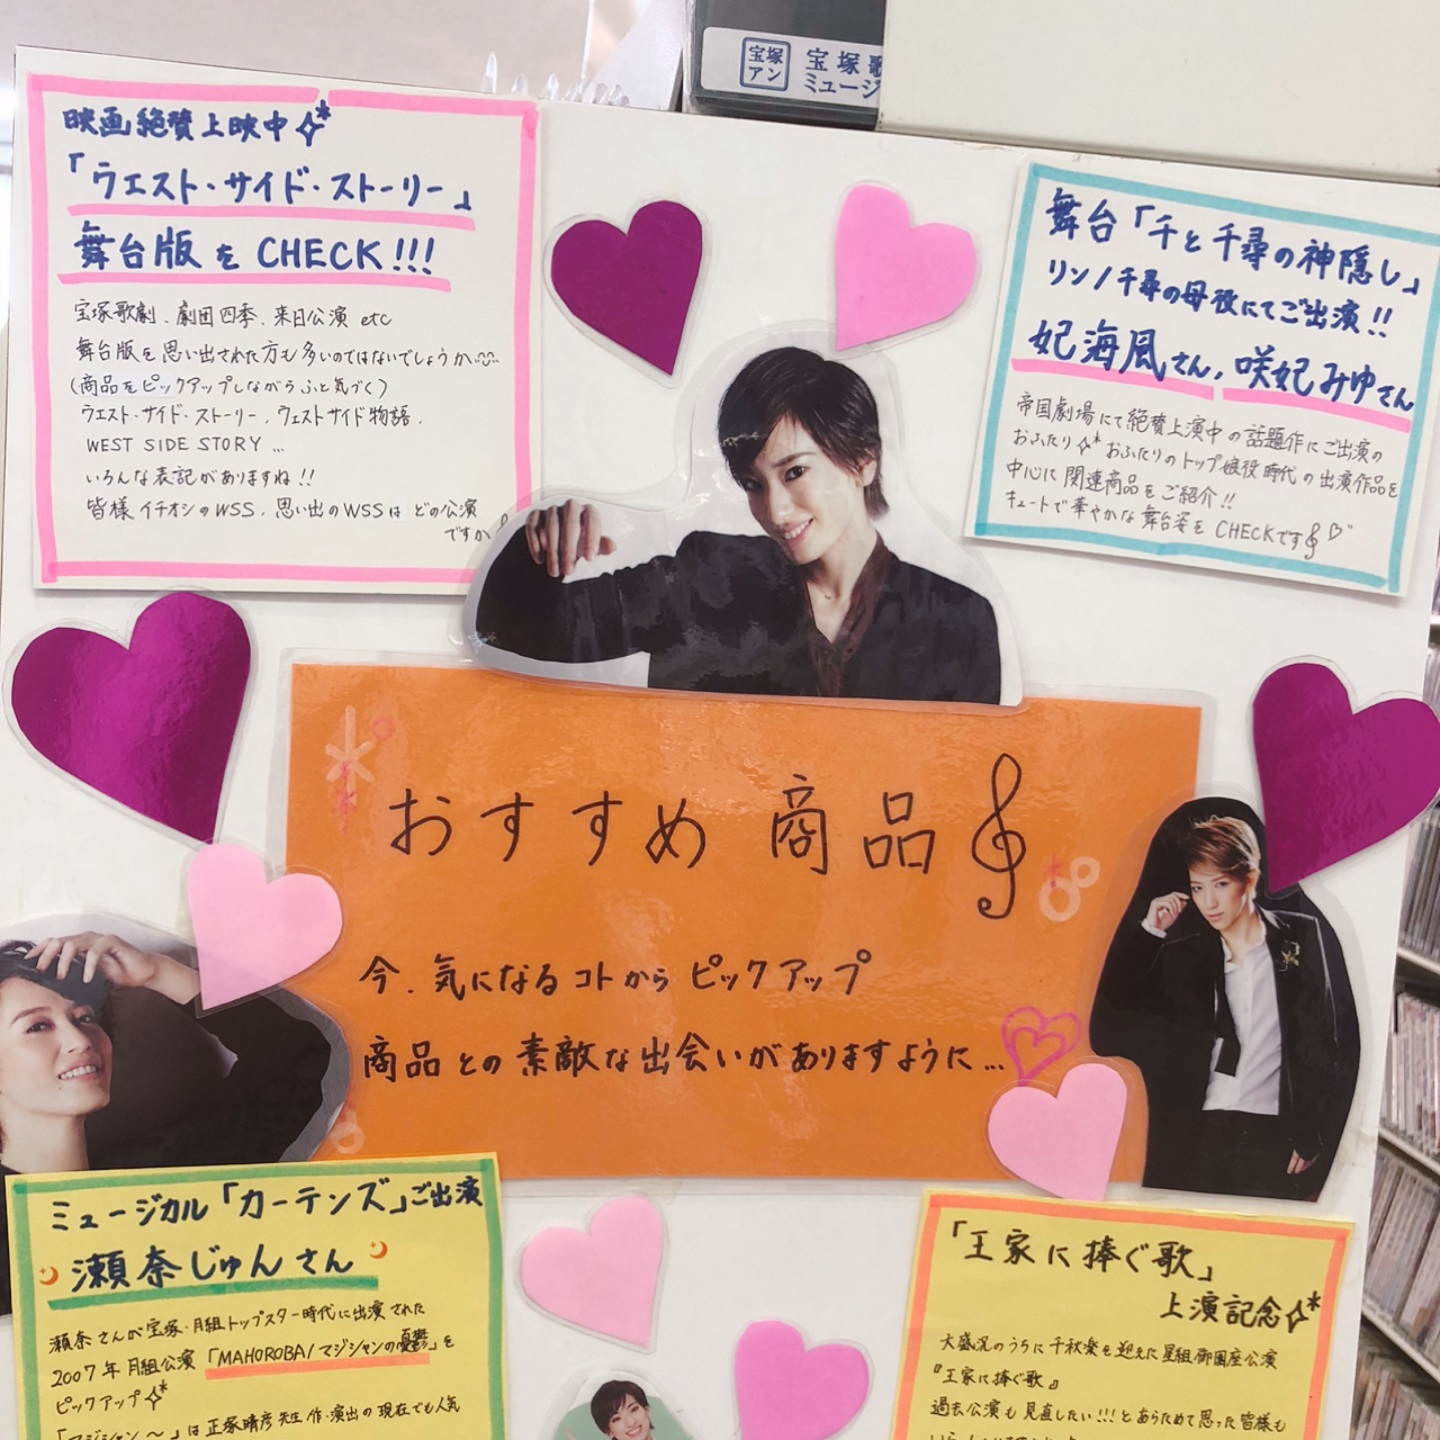 宝塚
アン
宝塚歌
ミュージ
映画絶賛上映中
「ウエスト・サイド・ストーリー」
舞台版をCHECK!!!
宝塚歌劇、劇団四季、来日公演 etc
舞台版を思い出された方も多いのではないでしょうか…
(商品をピックアップしながらふと気づく)
ウエスト・サイド・ストーリー, ウェストサイド物語,
WEST SIDE STORY …
いろんな表記がありますね!!
皆様イチオシのWSS, 思い出のWSSは どの公演
ですか
舞台「千と千尋の神隠し」
リン/千尋の母役にてご出演!!
妃海風さん, 咲妃みゆさん
帝国劇場にて絶賛上演中の話題作にご出演の
おふたり おふたりのトップ娘役時代の出演作品を
中心に関連商品をご紹介!!
キュートで華やかな舞台姿を CHECKです
おすすめ 商品
今、気になるコトから ピックアップ
商品との素敵な出会いがありますように…
ミュージカル「カーテンズ」ご出演
瀬奈じゅんさん
瀬奈さんが宝塚・月組トップスター時代に出演された
2007年月組公演「MAHOROBA/マジシャンの憂鬱」を
ピックアップ
「マジシャン〜」は正塚晴彦先生作・演出の現在でも人気
「王家に捧ぐ歌」
上演記念
大盛況のうちに千秋楽を迎えた星組御園座公演
『王家に捧ぐ歌』
過去公演も見直したい!!!とあらためて思った皆様も